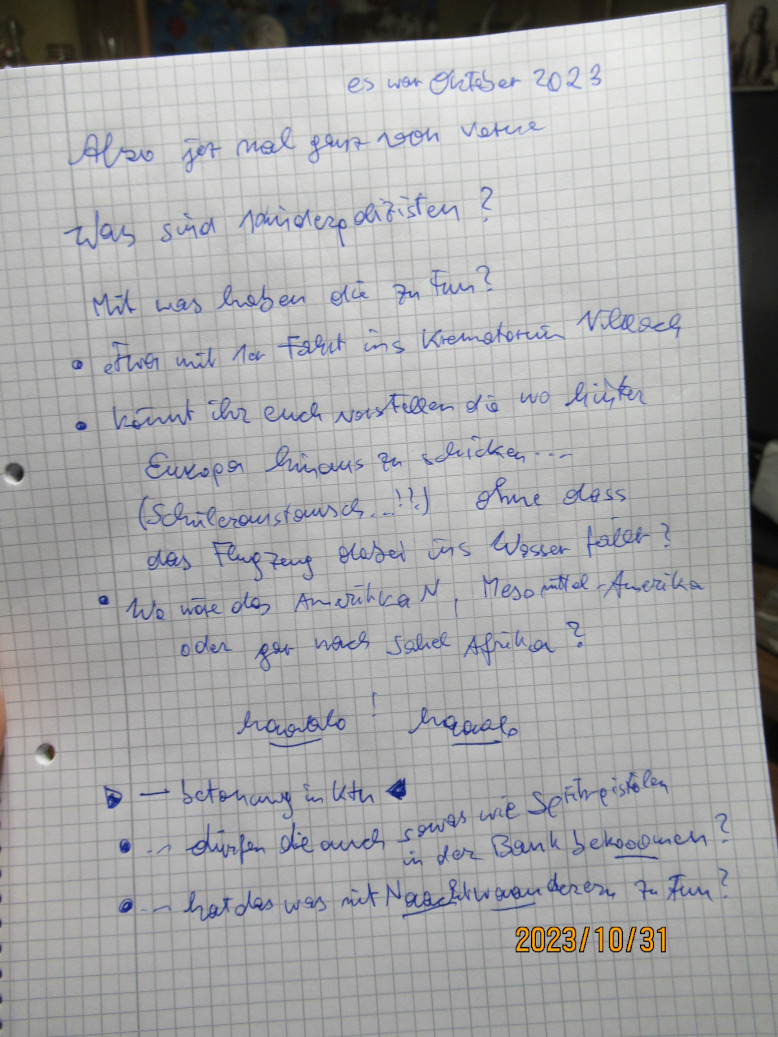 es war Oktober 2023
Also jez mal ganz von vorne
Was sind polizisten?
Mit was haben die zu tun?
• etwa mit 1er Fahrt ins Krematorium Villach
• könnt ihr euch vorstellen die wo hinter
Europa hinaus zu schicken ...
(Schüleraustausch...!!?.) ohne dass
das Flugzeug dabei ins Wasser fället?
• Wo wäre das Amerika N, Mesomittel-Amerika
oder gar nach Sahel Afrika?
! 
— betonung in Ktn
• ... dürfen die auch sowas wie pistolen
in der Bank bekooomen?
• ... hat das was mit Naachtwaanderern zu tun?
2023/10/31